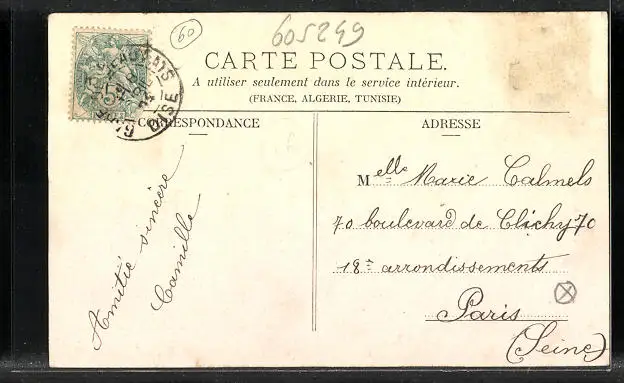 60
605249
CARTE POSTALE.
A utiliser seulement dans le service intérieur.
(FRANCE, ALGERIE, TUNISIE)
CORRESPONDANCE
ADRESSE
Amitié sincère
Camille
Melle Marie Calmels
70 boulevard de Clichy 70
18e arrondissements
Paris
(Seine)
BEAUVAIS
OISE